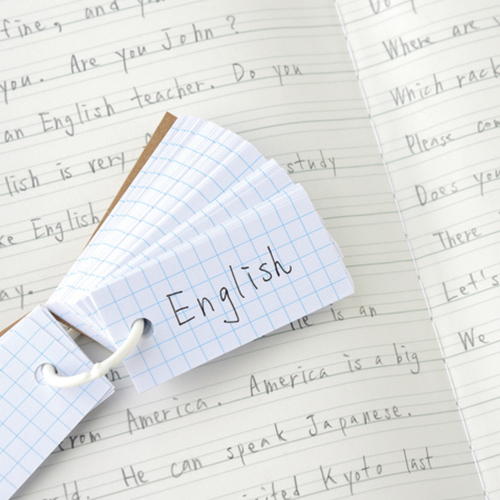 fine, and
you. Are you John?
an English teacher. Do you
lish is very
study
ke English
ay.
English
He is an
from America. America is a big
ld. He can speak Japanese.
ited Kyoto last
Do y
Where are
Which rack
Please com
Does you
There
Let's
We